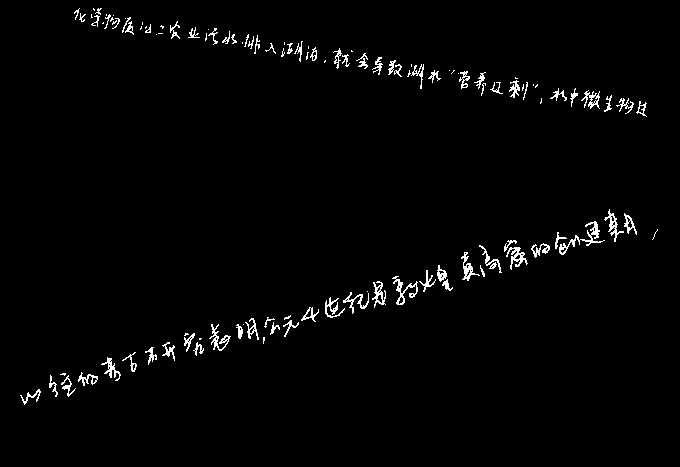 化学物质的工农业污水排入湖泊,就会导致湖水“营养过剩”,水中微生物过
以往的考古研究表明,公元4世纪是敦煌莫高窟的创建期,